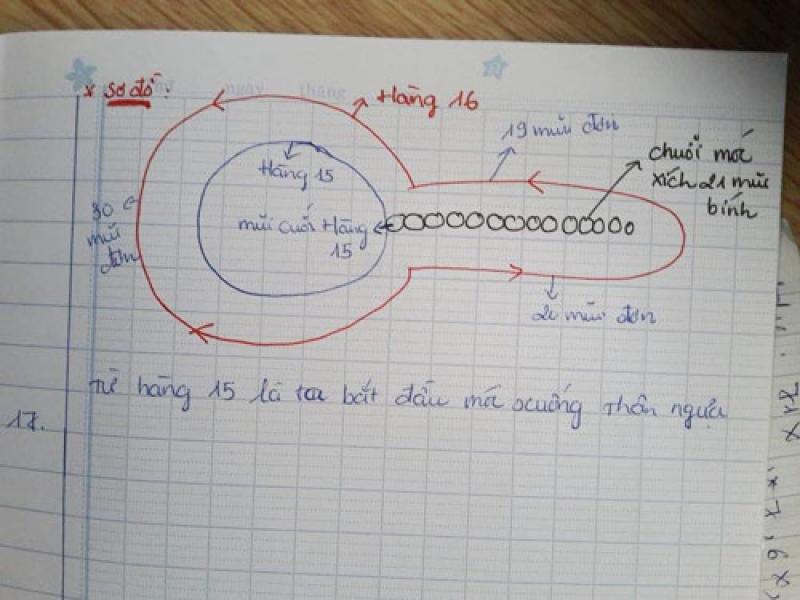 * sơ đồ:
ngày tháng
Hàng 16
19 mũi đơn
chuỗi móc
xích 21 mũi
bính
Hàng 15
mũi cuối Hàng
15
30
mũi
đơn
21 mũi đơn
Từ hàng 15 là ta bắt đầu móc xuống thân ngựa
17.